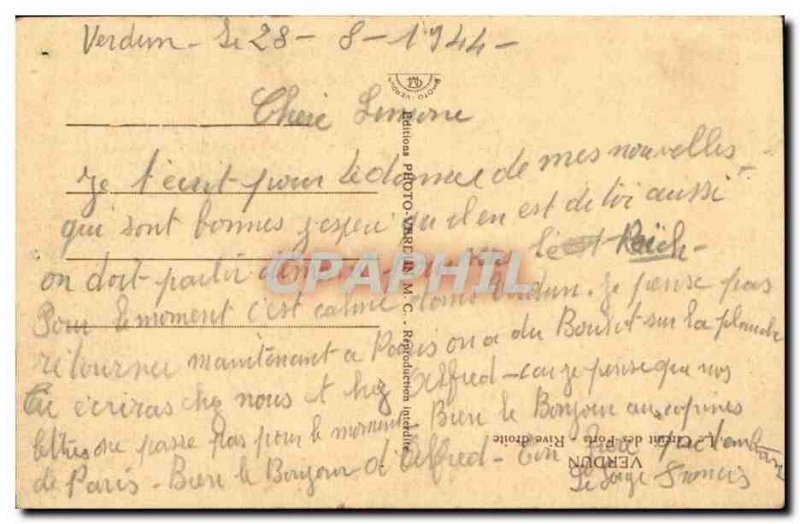 Verdun - Le 28 - 8 - 1944 -
PHOTO-VERDUN
Chère Simone
Je t'écrit pour te donner de mes nouvelles
qui sont bonnes j'espère qu'il en est de toi aussi
on doit partir pour le Reich -
Pour le moment c'est calme dans Verdun. Je pense pas
retourner maintenant a Paris on a du Boulot sur la planche
Tu écriras chez nous et chez Alfred - car je pense que nos
lettres ne passe pas pour le moment. Bien le Bonjour aux copines
de Paris - Bien le Bonjour d'Alfred - Ton frère
Francis
Editions PHOTO-VERDUN M. C. - Reproduction interdite
VERDUN
Le Circuit des Forts - Rive droite
CPAPHIL